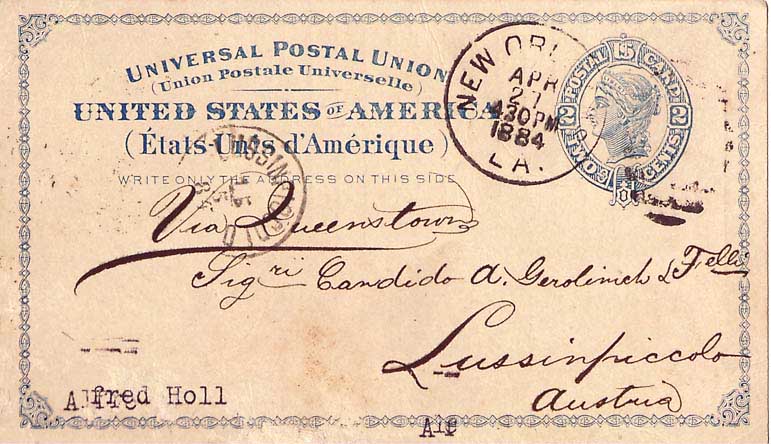 UNIVERSAL POSTAL UNION
(Union Postale Universelle)
UNITED STATES OF AMERICA
(États-Unis d'Amérique)
WRITE ONLY THE ADDRESS ON THIS SIDE
NEW ORL
APR
27
430PM
1884
LA.
POSTAL CARD
2 2
TWO CENTS
U S
LUSSINPICCOLO
Via Queenstown
Sigri Candido A. Gerolinich & Felli
Lussinpiccolo
Austria
Alfred Holl
Alf